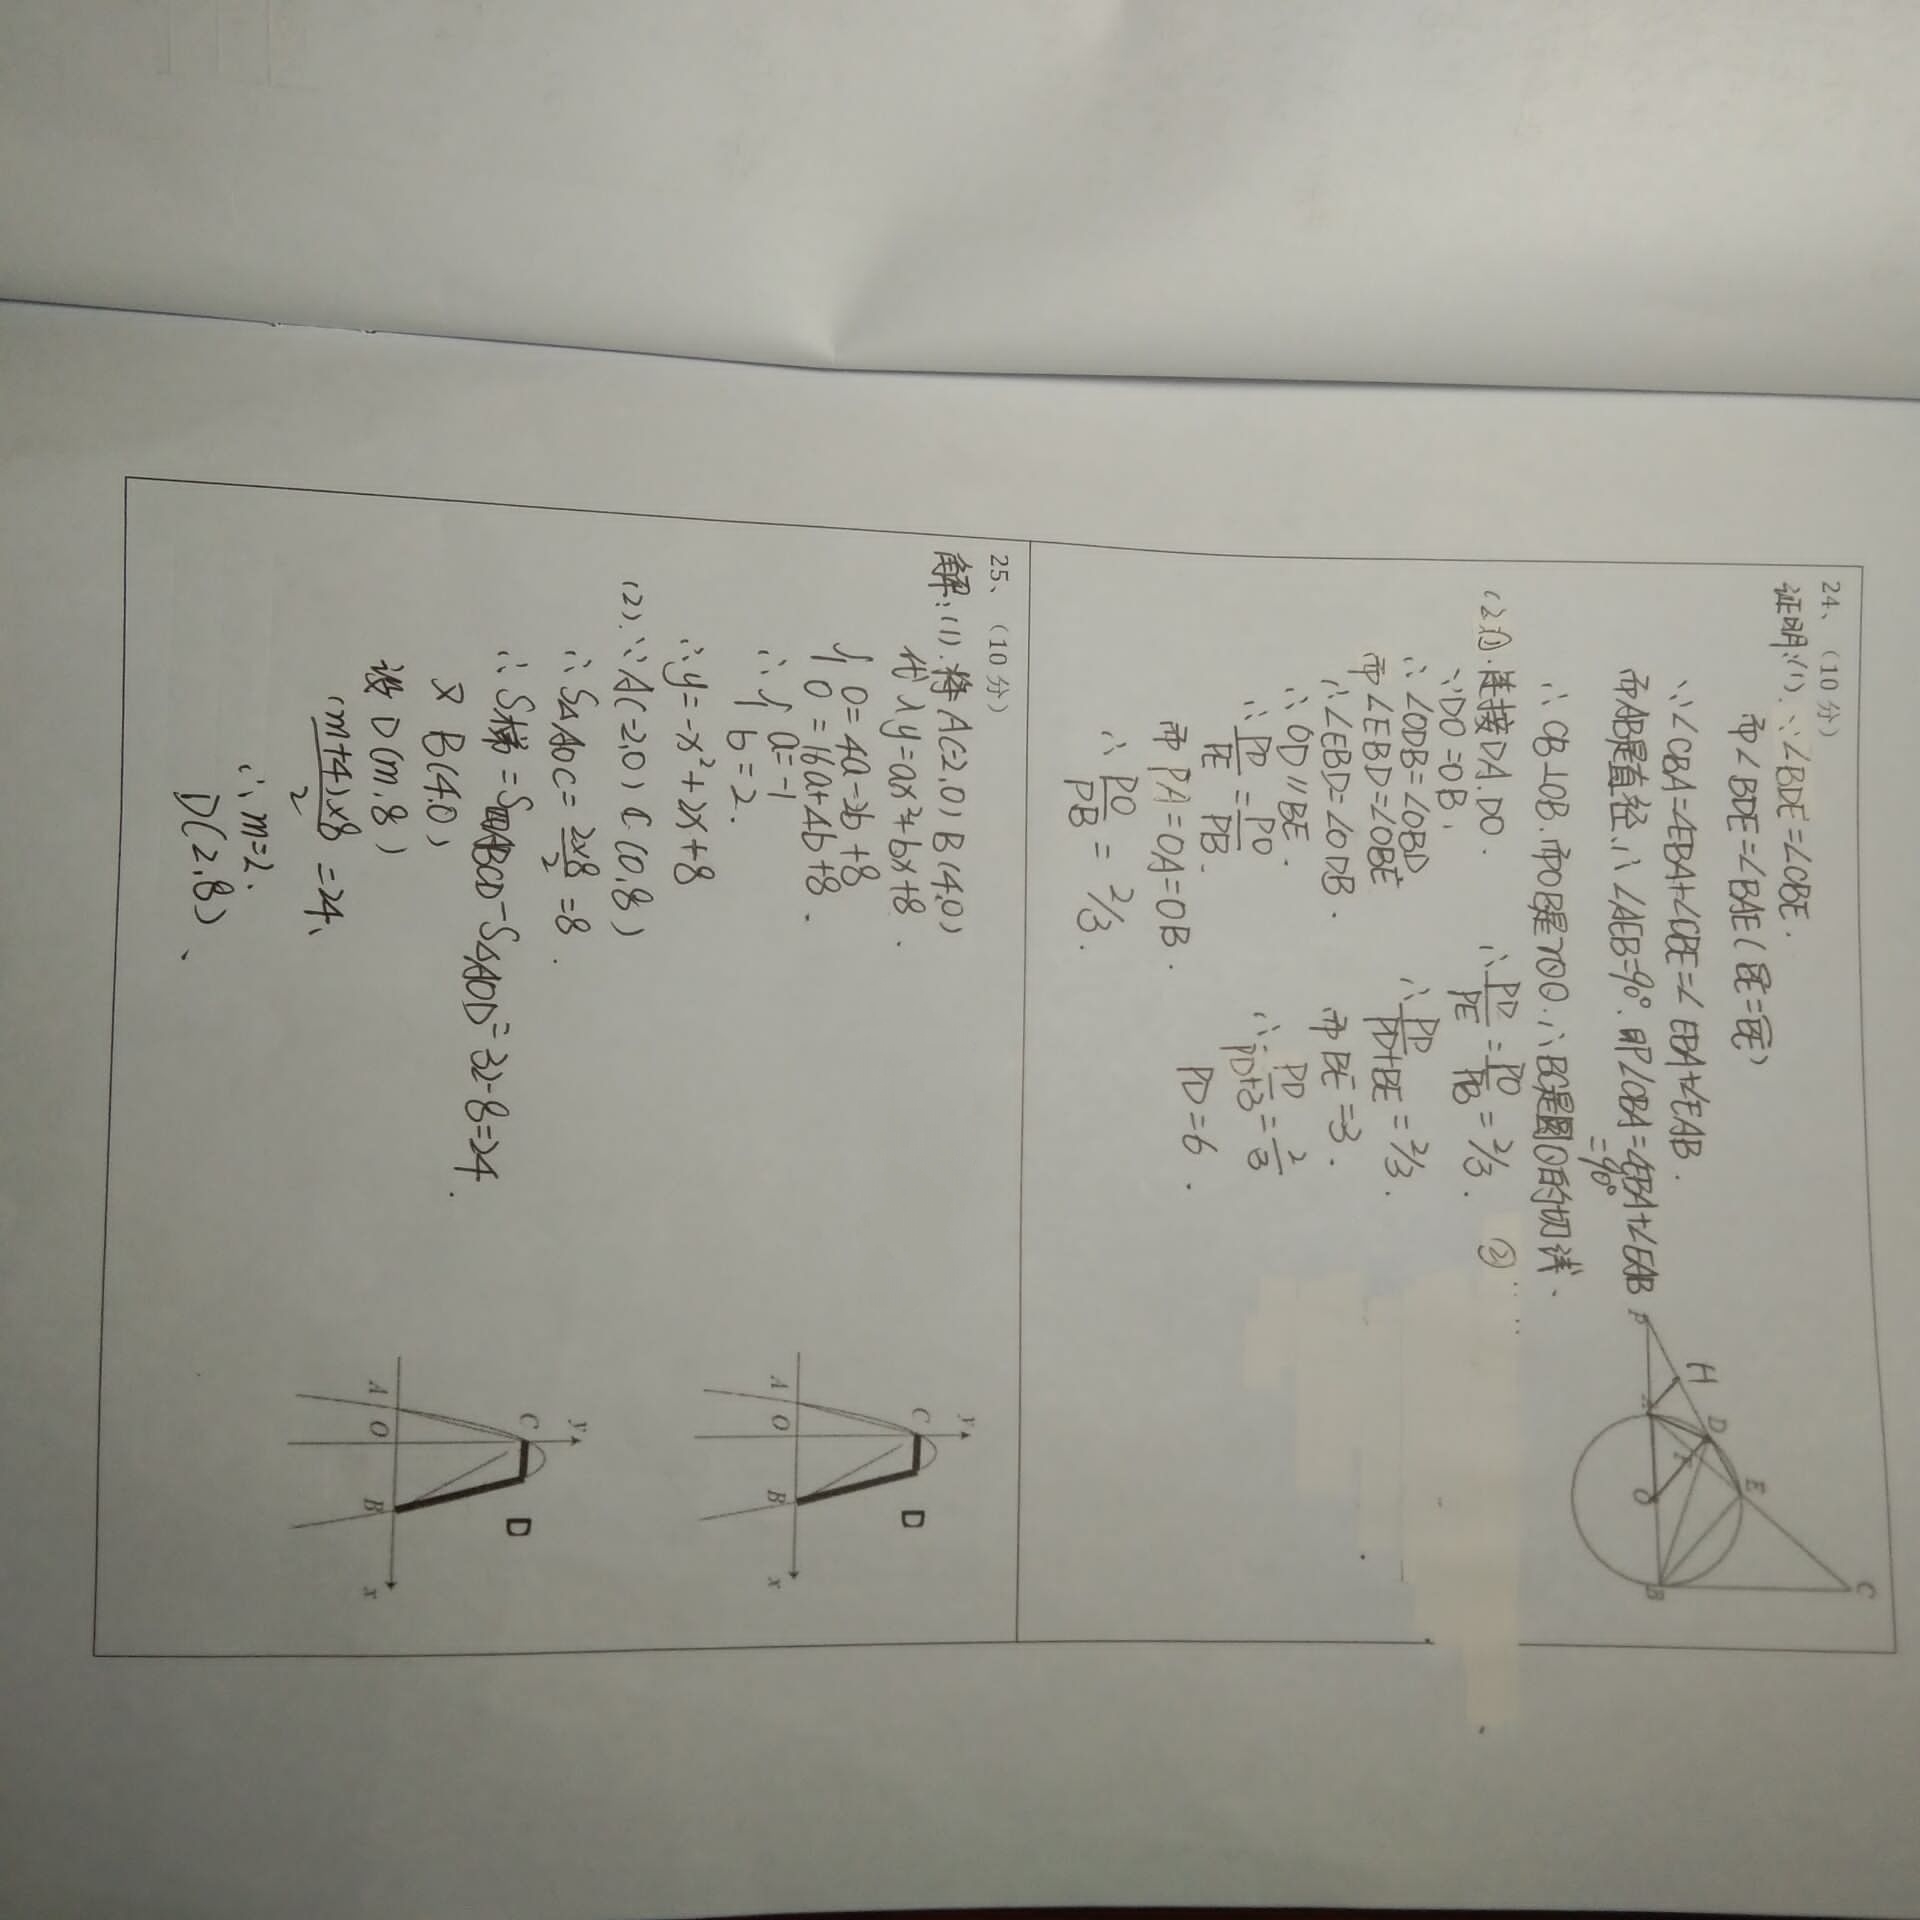 24、（10分）
证明:(1).∵∠BDE=∠CBE.
而∠BDE=∠BAE(BE=BE)
∴∠CBA=∠EBA+∠CBE=∠EBA+∠EAB.
而AB是直径.∴∠AEB=90°.即∠CBA=∠EBA+∠EAB
=90°
∴CB⊥OB.而OB是r⊙O.∴BC是圆O的切线、
(2)①.连接DA.DO.
∵DO=OB.
∴∠ODB=∠OBD
而∠EBD=∠OBE
∴∠EBD=∠ODB.
∴OD//BE.
∴PD/PE=PO/PB.
而PA=OA=OB.
∴PO/PB=2/3.
∴PD/PE=PO/PB=2/3.
∴PD/PD+BE=2/3.
而BE=3.
∴PD/PD+3=2/3
PD=6.
②
P
H
A
D
F
E
O
B
C
25、（10分）
解:(1).将A(-2.0)B(4.0)
代入y=ax²+bx+8.
{0=4a-2b+8
0=16a+4b+8.
∴{a=-1
b=2.
∴y=-x²+2x+8
(2).∵A(-2.0)C(0.8)
∴S△AOC=2×8/2=8.
∴S梯=S四ABCD-S△AOD=32-8=24.
又B(4.0)
设D(m.8)
(m+4)×8/2=24、
∴m=2.
D(2.8)、
y
C
D
A
O
B
x
y
C
D
A
O
B
x